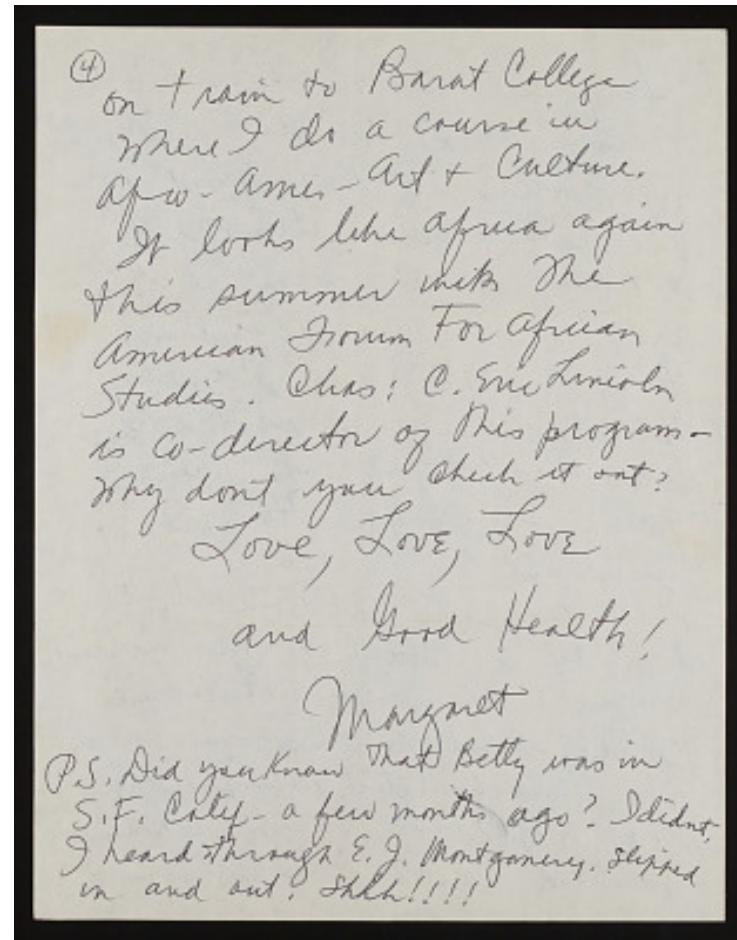 ④
on train to Barat College
where I do a course in
Afro-Amer-Art + Culture.
It looks like Africa again
this summer with the
American Forum For African
Studies. Chas: C. Eric Lincoln
is co-director of this program-
Why don't you check it out?
Love, Love, Love
and Good Health!
Margaret
P.S. Did you know that Betty was in
S.F. Calif- a few months ago? I didn't,
I heard through E.J. Montgomery. Slipped
in and out! Shhh!!!!